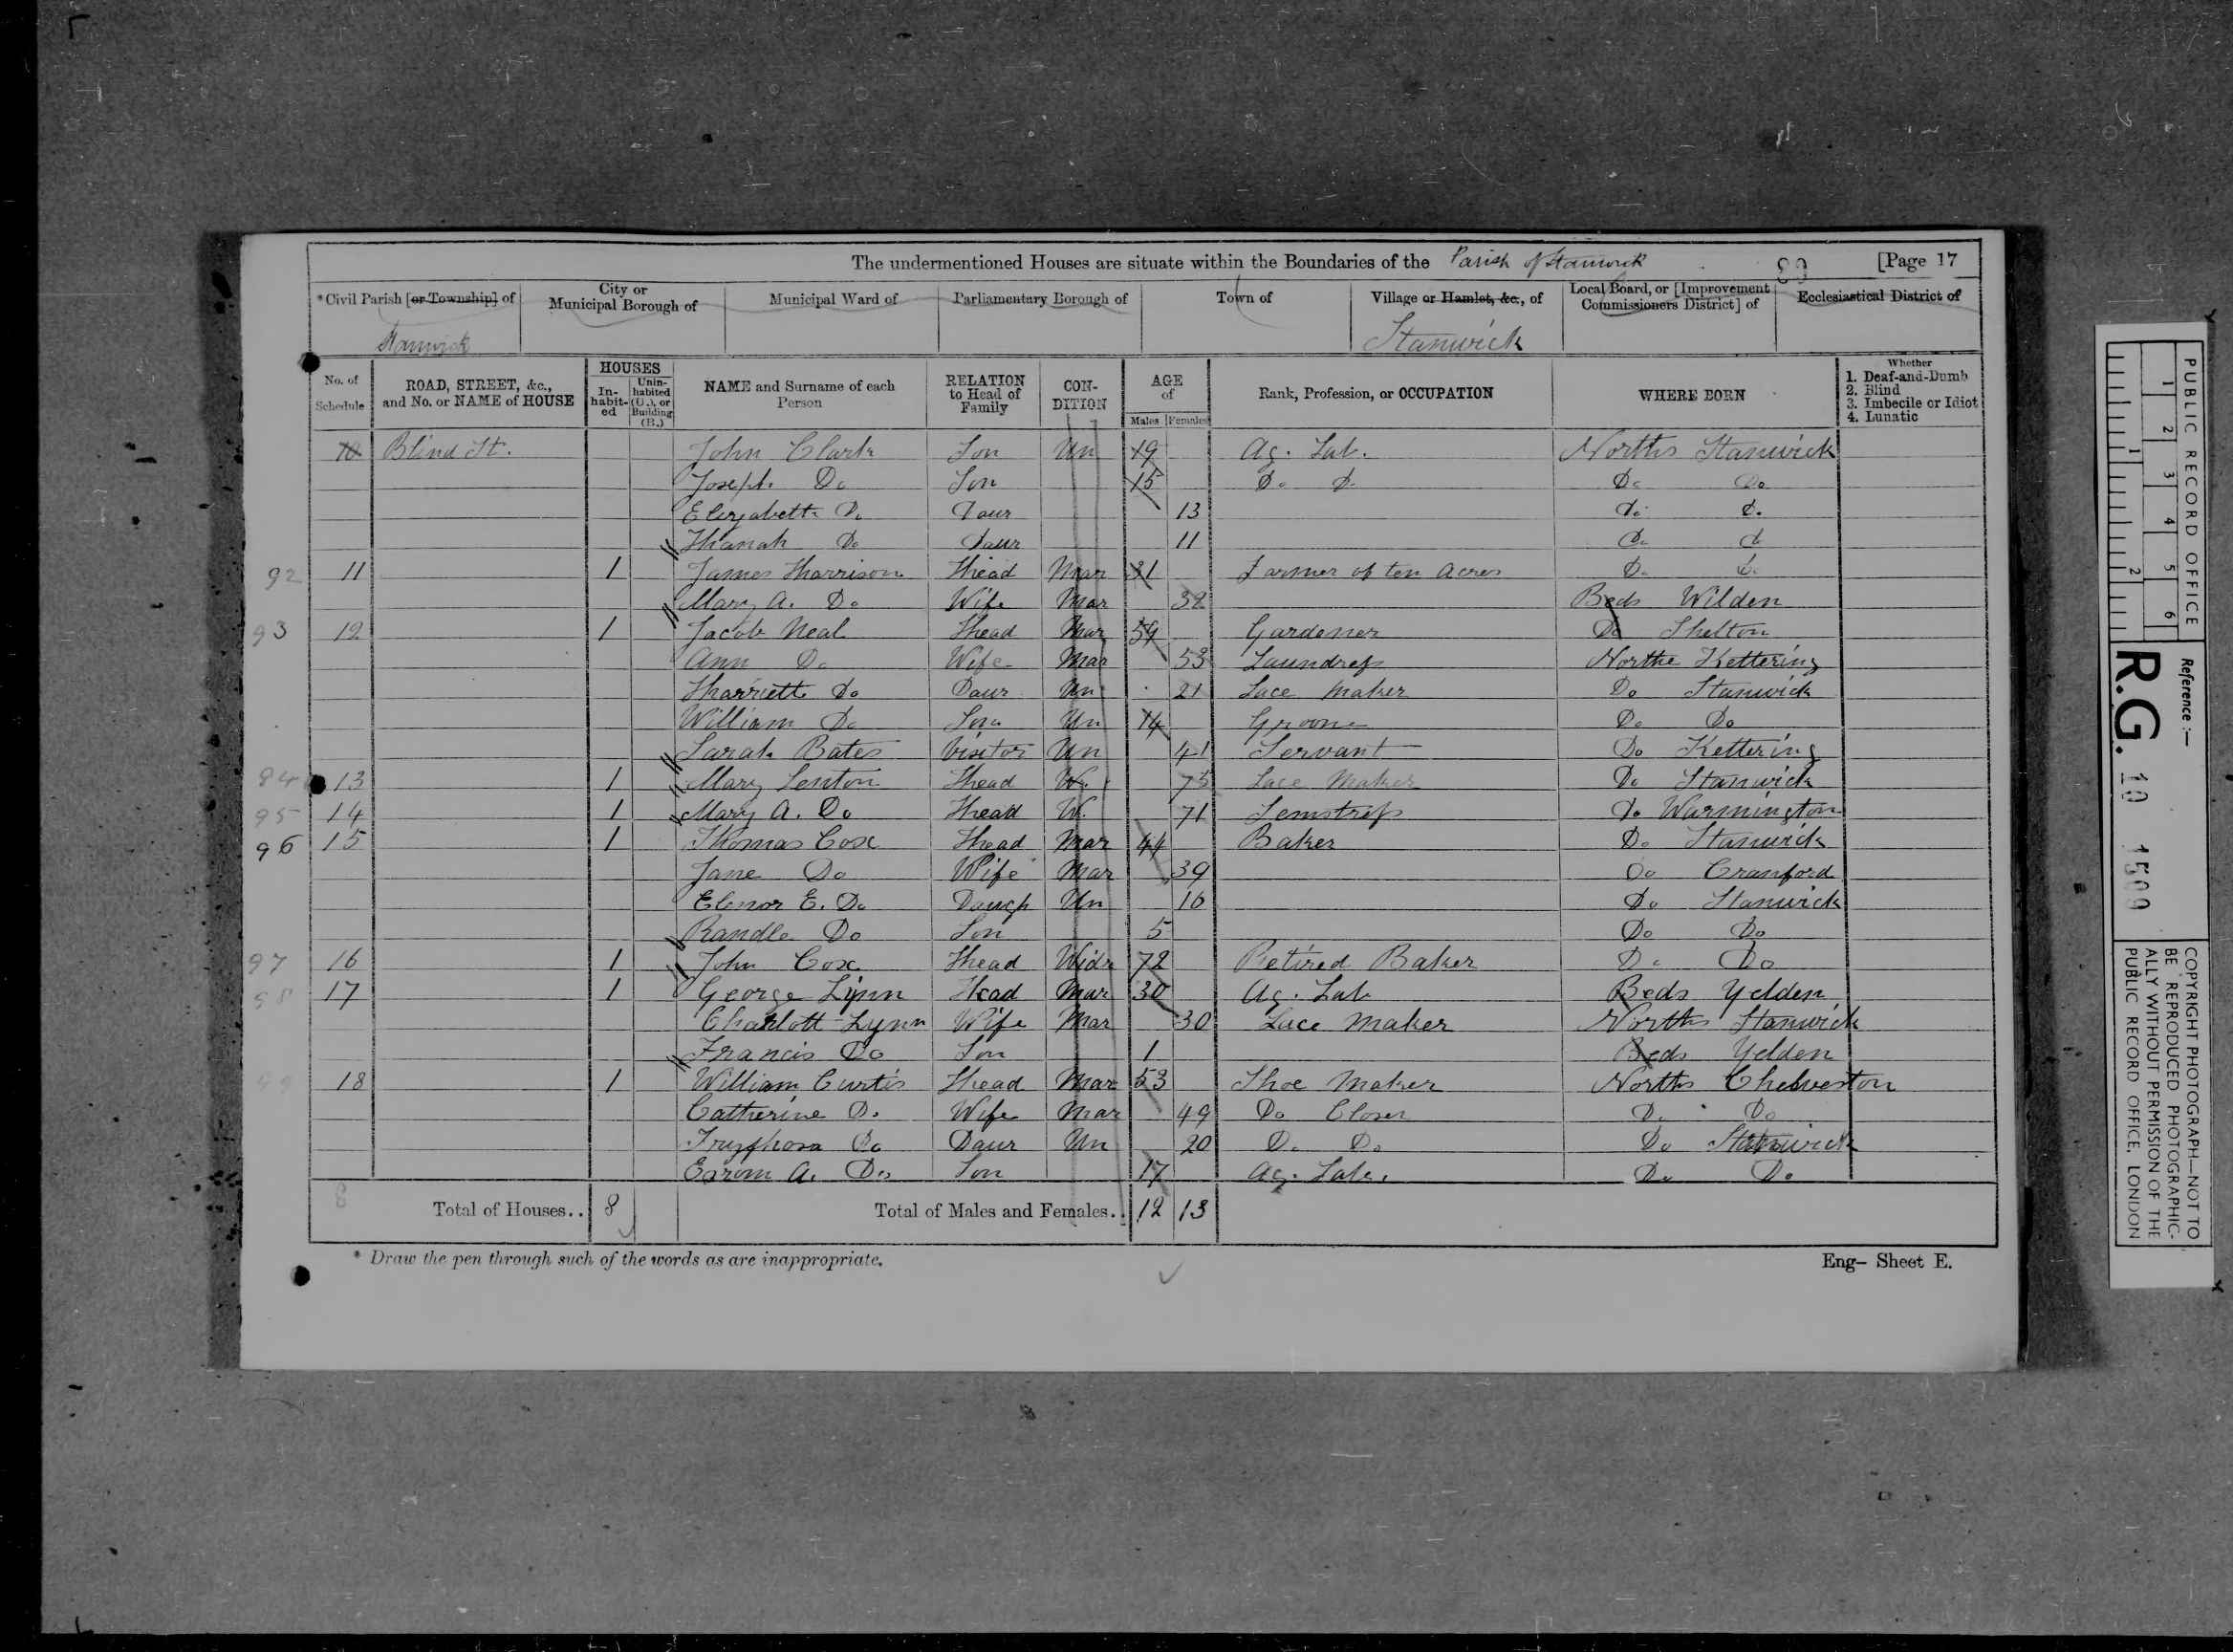 The undermentioned Houses are situate within the Boundaries of the Parish of Stanwick 89 [Page 17
*Civil Parish [or Township] of
City or Municipal Borough of
Municipal Ward of
Parliamentary Borough of
Town of
Village or Hamlet, &c., of
Local Board, or [Improvement Commissioners District] of
Ecclesiastical District of
Stanwick Stanwick
No. of Schedule
ROAD, STREET, &c., and No. or NAME of HOUSE
HOUSES
In-habit-ed
Unin-habited (U.), or Building (B.)
NAME and Surname of each Person
RELATION to Head of Family
CON-DITION
AGE of
Males Females
Rank, Profession, or OCCUPATION
WHERE BORN
Whether
1. Deaf-and-Dumb
2. Blind
3. Imbecile or Idiot
4. Lunatic
10 Blind St. John Clark Son Un 19 Ag. Lab. Norths Stanwick
Joseph Do Son 15 Do Do Do Do
Elizabeth Do Daur 13 Do Do
Hanah Do Daur 11 Do Do
92 11 1 James Harrison Head Mar 31 Farmer of ten Acres Do Do
Mary A. Do Wife Mar 32 Beds Wilden
93 12 1 Jacob Neal Head Mar 59 Gardener Do Shelton
Ann Do Wife Mar 53 Laundress Norths Kettering
Harriett Do Daur Un 21 Lace Maker Do Stanwick
William Do Son Un 14 Groom Do Do
Sarah Bates Visitor Un 41 Servant Do Kettering
94 13 1 Mary Lenton Head W. 75 Lace Maker Do Stanwick
95 14 1 Mary A. Do Head W. 71 Semstress Do Warmington
96 15 1 Thomas Cox Head Mar 44 Baker Do Stanwick
Jane Do Wife Mar 39 Do Cranford
Elenor E. Do Daugh Un 16 Do Stanwick
Randle Do Son 5 Do Do
97 16 1 John Cox Head Widr 72 Retired Baker Do Do
98 17 1 George Lynn Head Mar 30 Ag. Lab Beds Yelden
Charlott Lynn Wife Mar 30 Lace Maker Norths Stanwick
Francis Do Son 1 Beds Yelden
99 18 1 William Curtis Head Mar 53 Shoe Maker Norths Chelveston
Catherine Do Wife Mar 49 Do Closer Do Do
Tryphosa Do Daur Un 20 Do Do Do Stanwick
A. Do Son 17 Ag. Lab. Do Do
8 Total of Houses.. 8 Total of Males and Females.. 12 13
* Draw the pen through such of the words as are inappropriate.
Eng- Sheet E.
PUBLIC RECORD OFFICE
1 2 3 4 5 6
1 2
Reference :—
R.G. 10 1509
COPYRIGHT PHOTOGRAPH—NOT TO
BE REPRODUCED PHOTOGRAPHIC-
ALLY WITHOUT PERMISSION OF THE
PUBLIC RECORD OFFICE, LONDON